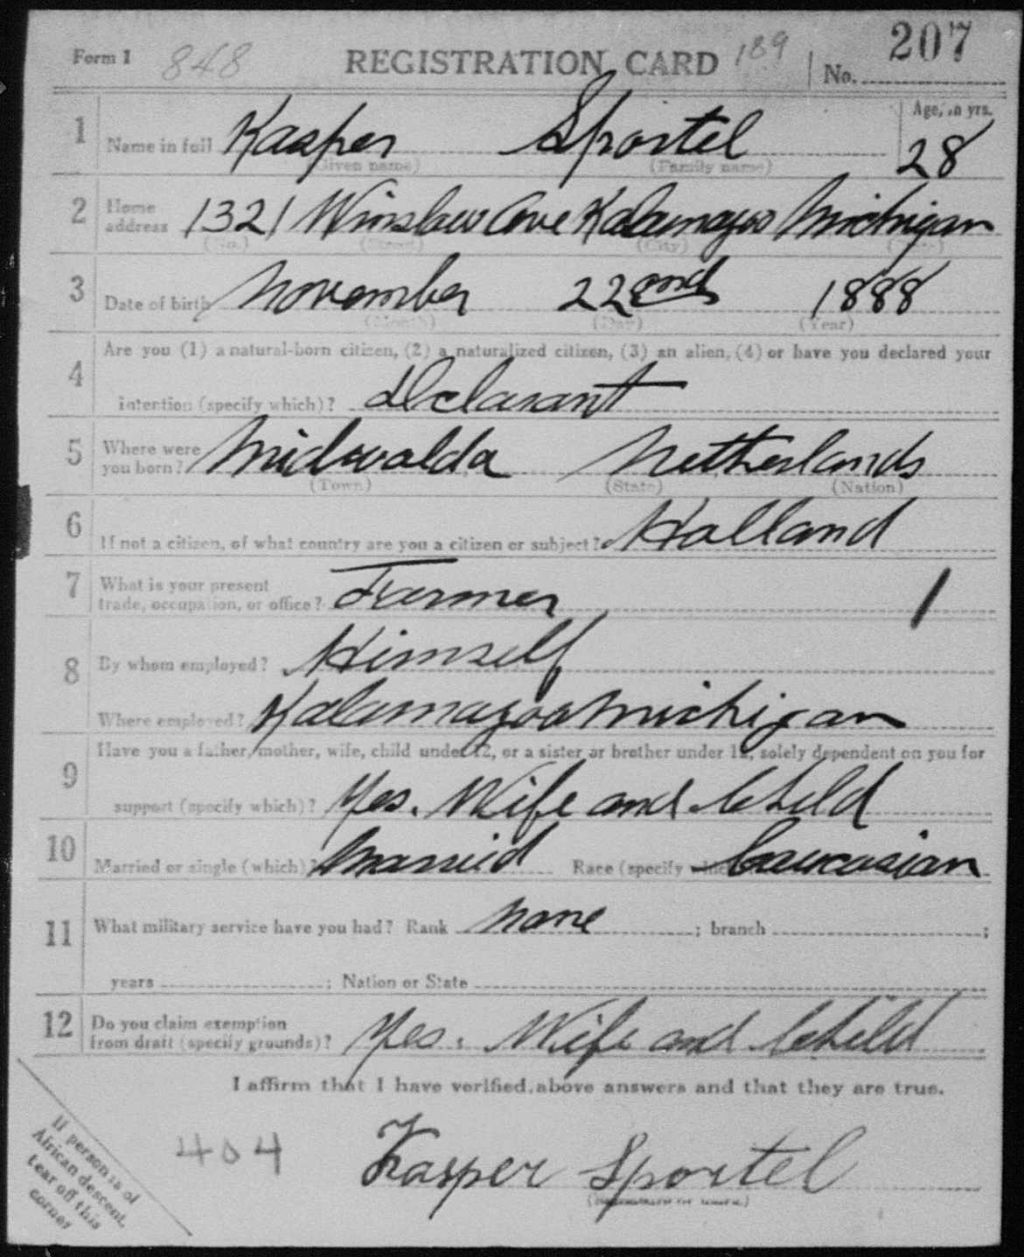 Form 1 848 REGISTRATION CARD 189 No. 207
1 Name in full Kasper Sportel Age, in yrs. 28
(Given name) (Family name)
2 Home address 1321 Winslow Ave Kalamazoo Michigan
(No.) (Street) (City) (State)
3 Date of birth November 22 2nd 1888
(Month) (Day) (Year)
4 Are you (1) a natural-born citizen, (2) a naturalized citizen, (3) an alien, (4) or have you declared your
intention (specify which)? Declarant
5 Where were you born? Midwolda Netherlands
(Town) (State) (Nation)
6 If not a citizen, of what country are you a citizen or subject? Holland
7 What is your present trade, occupation, or office? Farmer 1
8 By whom employed? Himself
Where employed? Kalamazoo Michigan
9 Have you a father, mother, wife, child under 12, or a sister or brother under 12, solely dependent on you for
support (specify which)? Yes. Wife and Child
10 Married or single (which)? Married Race (specify which)? Caucasian
11 What military service have you had? Rank None ; branch ;
years ; Nation or State
12 Do you claim exemption from draft (specify grounds)? Yes. Wife and Child
I affirm that I have verified above answers and that they are true.
404 Kasper Sportel
If person is of
African descent,
tear off this
corner